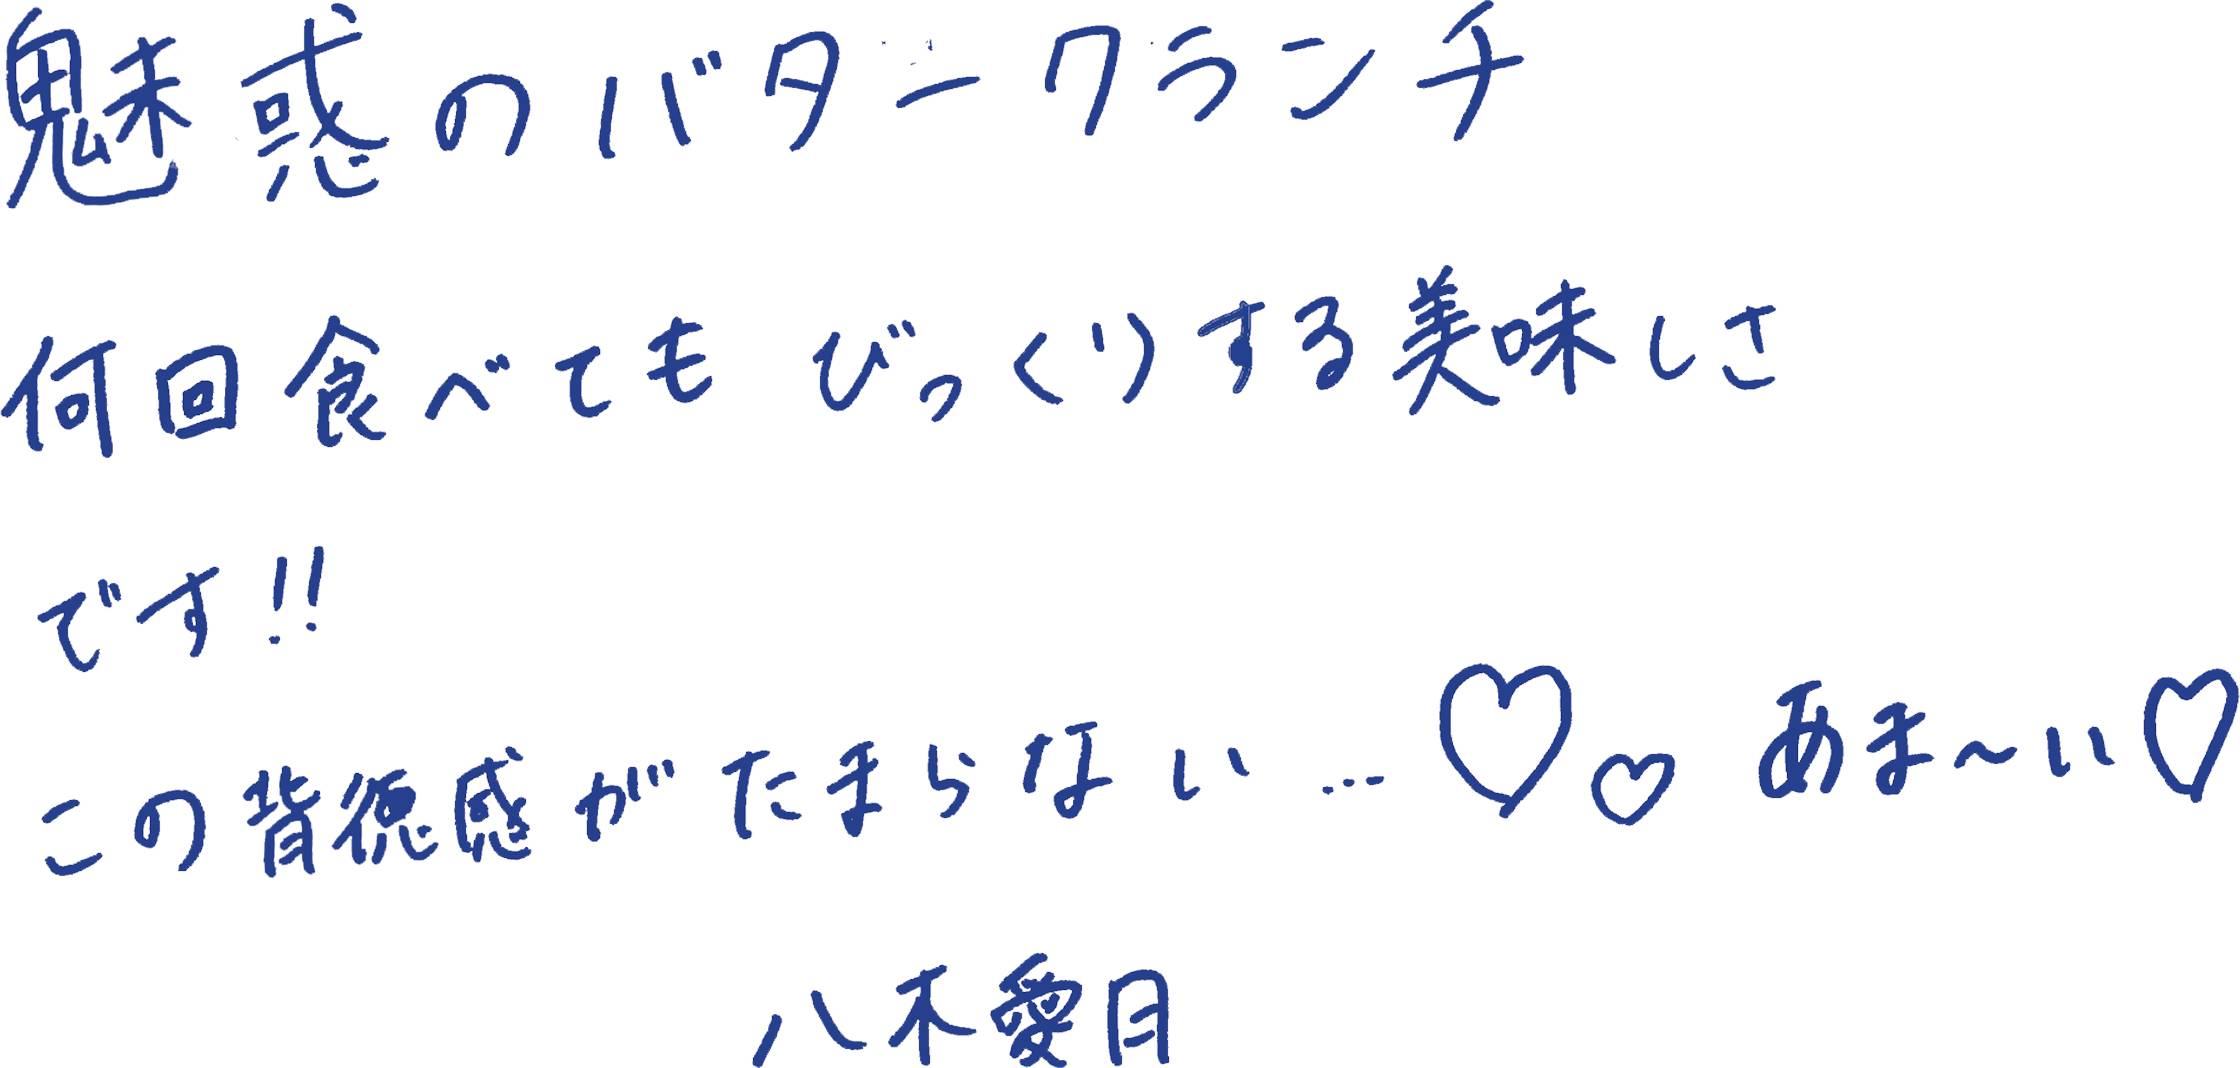 魅惑のバタークランチ
何回食べてもびっくりする美味しさ
です!!
この背徳感がたまらない…♡♡ あま〜い♡
八木愛月